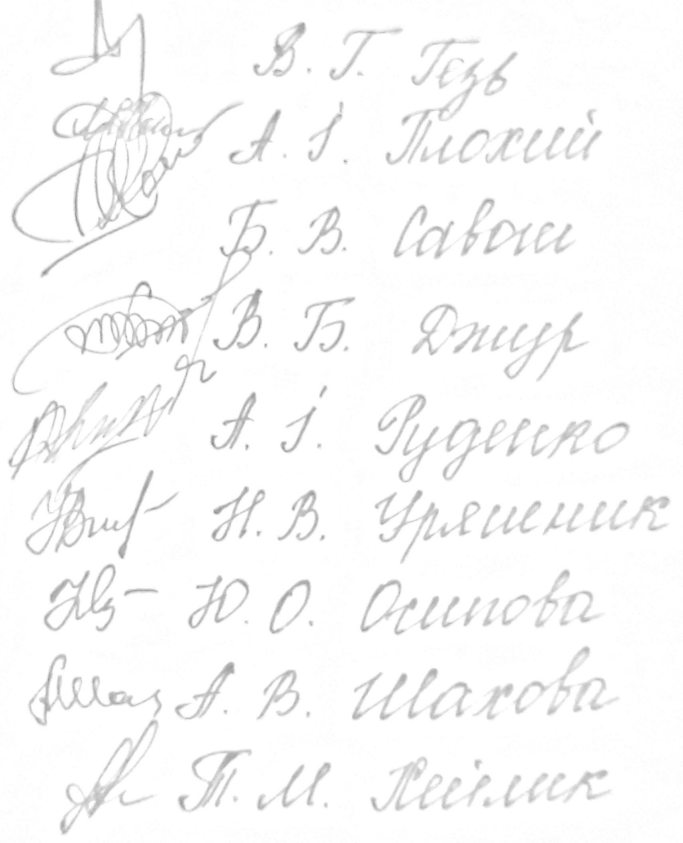 В. Г. Гезь
А. І. Плохий
Б. В. Савош
В. Б. Джур
А. І. Руденко
Н. В. Уряшеник
Ю. О. Осипова
А. В. Шахова
Т. М.